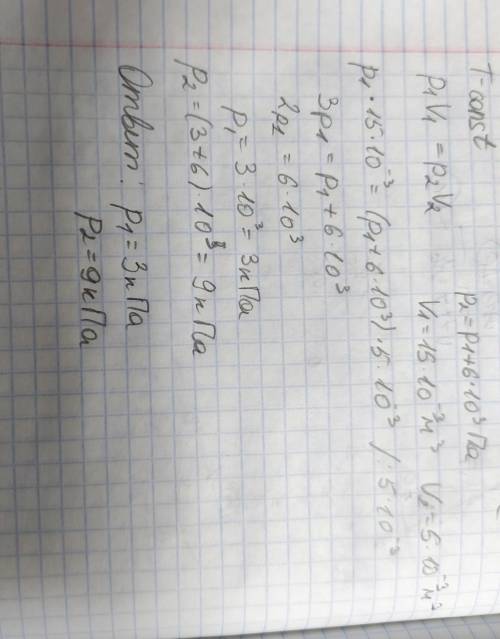 T-const p₂=p₁+6·10³Па
p₁V₁ = p₂V₂ V₁=15·10⁻³м³ V₂=5·10⁻³м³
p₁·15·10⁻³ = (p₁+6·10³)·5·10⁻³ /·5·10⁻³
3p₁ = p₁+6·10³
2p₁ = 6·10³
p₁ = 3·10³ = 3кПа
p₂ = (3+6)·10³ = 9кПа
Ответ: p₁ = 3кПа
p₂ = 9кПа